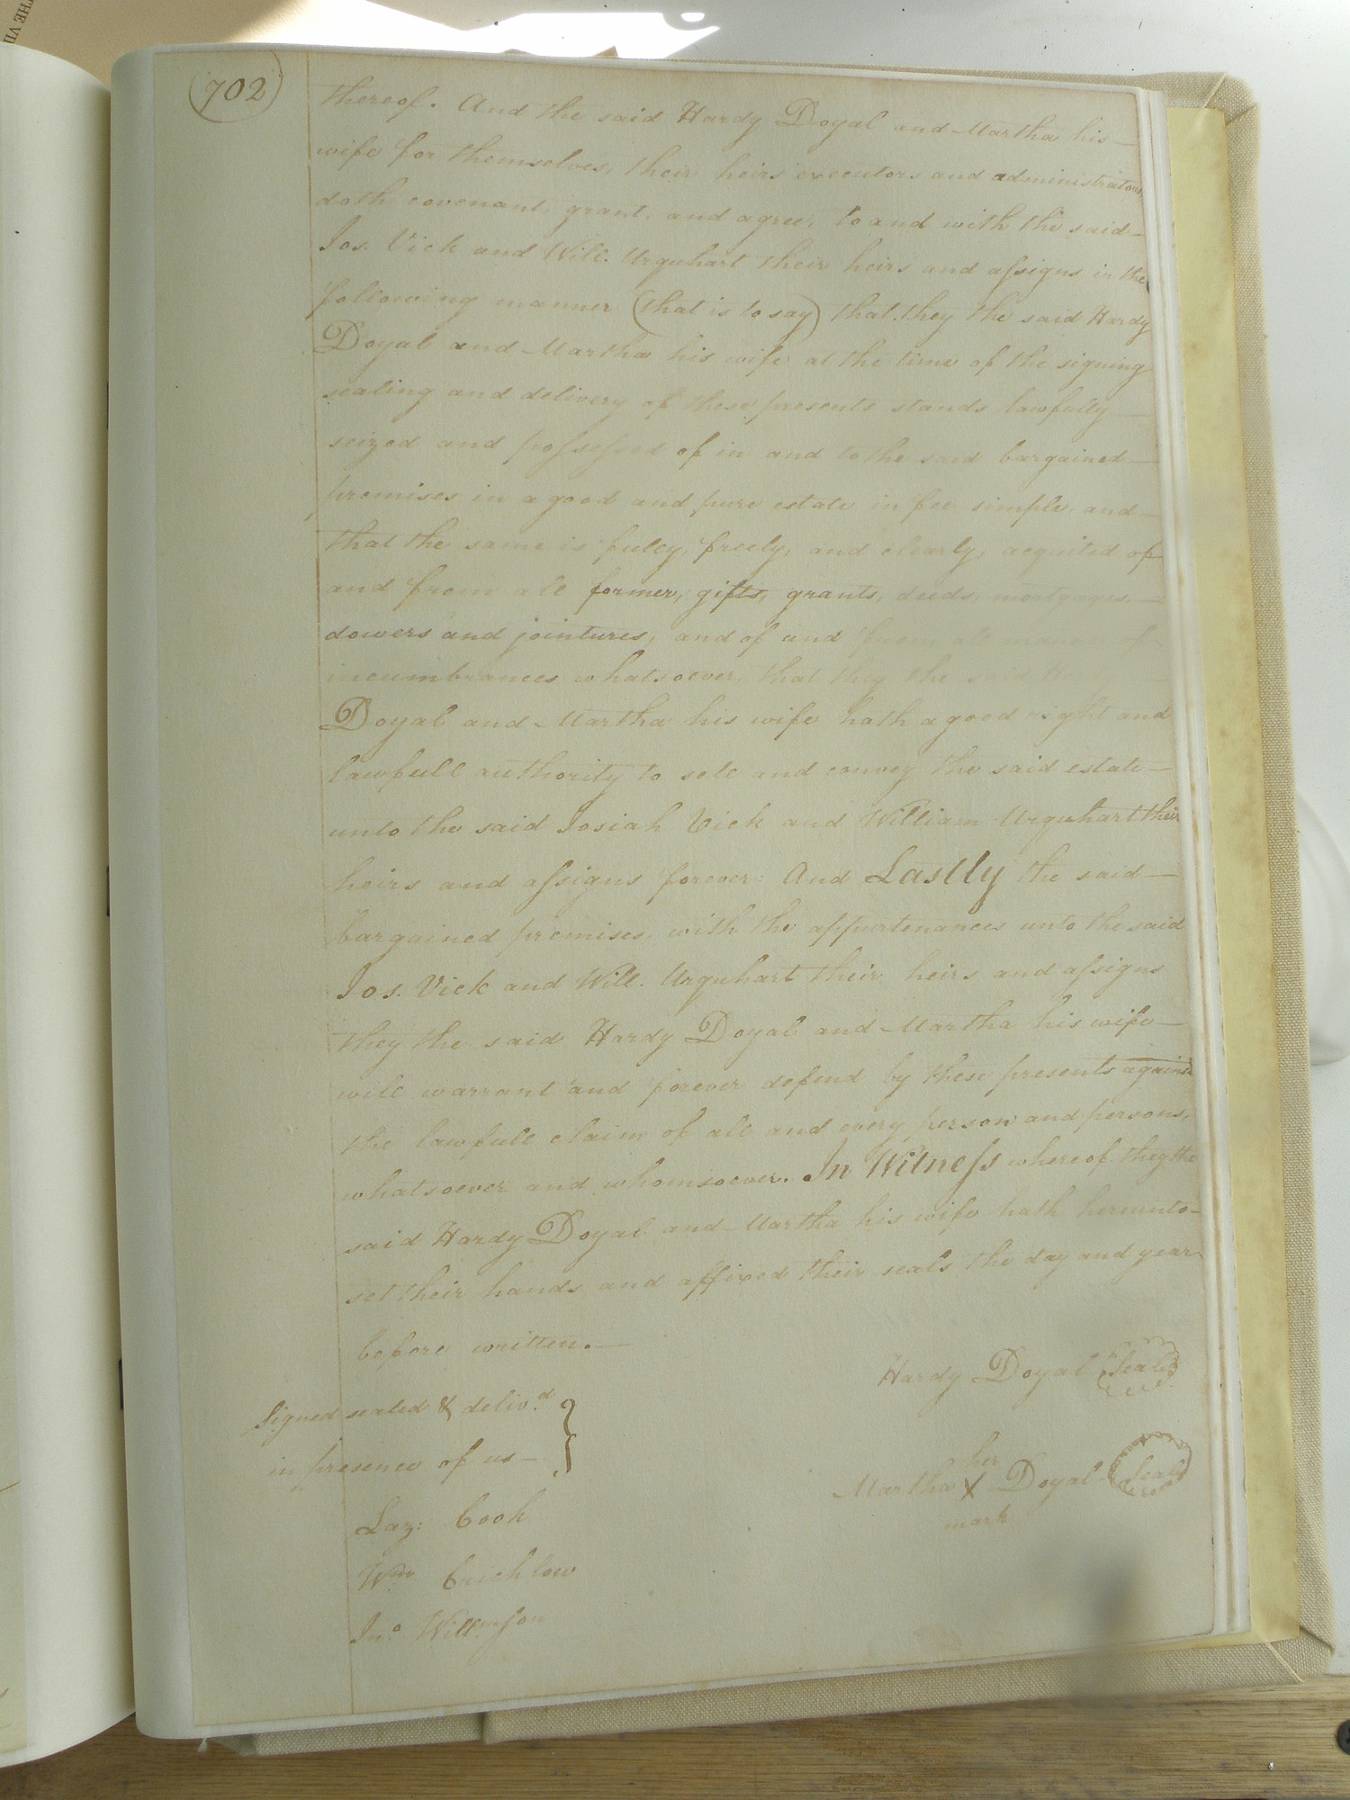 THE VI
702
thereof. And the said Hardy Doyal and Martha his
wife for themselves, their heirs executors and administrators
doth covenant, grant, and agree, to and with the said
Jos. Vick and Will. Urquhart their heirs and assigns in the
following manner (that is to say) that they the said Hardy
Doyal and Martha his wife at the time of the signing
sealing and delivery of these presents stands lawfully
seized and possessed of in and to the said bargained
premises in a good and pure estate in fee simple, and
that the same is fuley, freely, and clearly, acquited of
and from all former, gifts, grants, deeds, mortgages
dowers and jointures, and of and from all manner of
incumbrances whatsoever, that they the said
Doyal and Martha his wife hath a good right and
lawfull authority to sele and convey the said estate
unto the said Josiah Vick and William Urquhart their
heirs and assigns forever: And Lastly the said
bargained premises, with the appurtenances unto the said
Jos. Vick and Will. Urquhart their heirs and assigns
they the said Hardy Doyal and Martha his wife
will warrant and forever defend by these presents against
the lawfull claim of all and every person and persons,
whatsoever and whomsoever. In Witness whereof they the
said Hardy Doyal and Martha his wife hath hereunto
set their hands and affixed their seals the day and year
before written.
Hardy Doyal Seal
Signed sealed & deliv.d
in presence of us
her
Martha X Doyal Seal
mark
Laz: Cook
Wm Crichlow
Jno Willmson